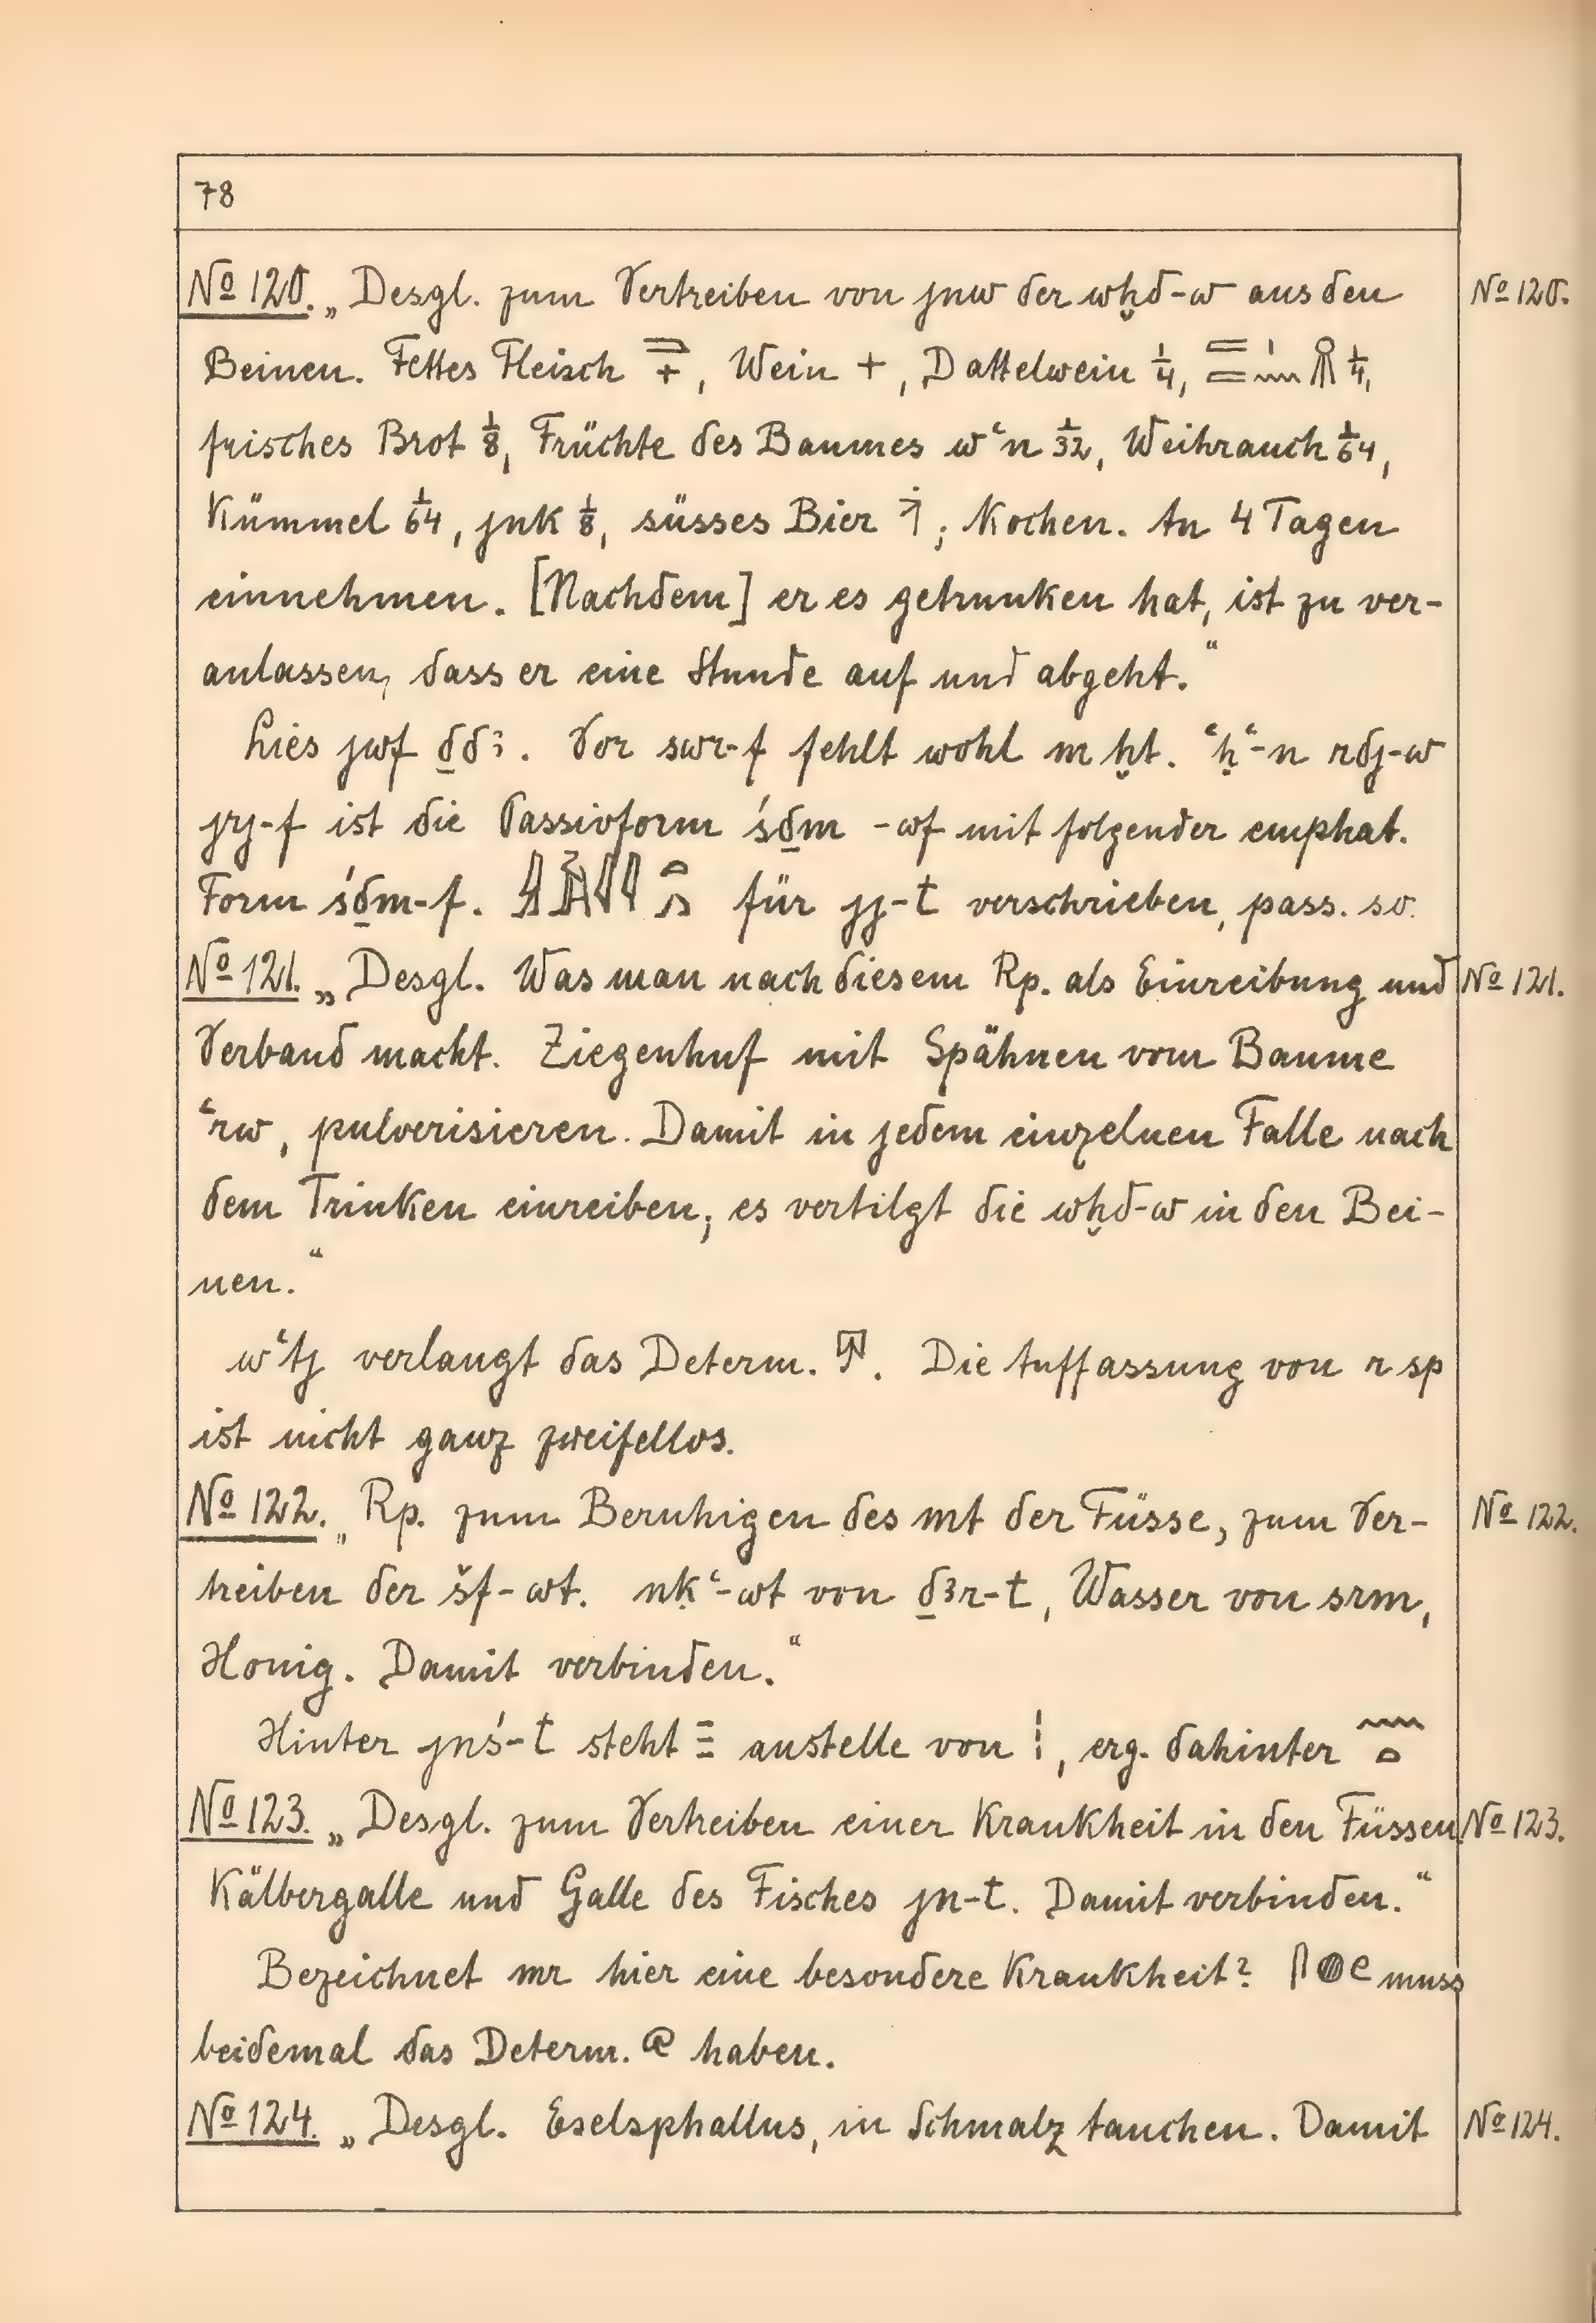 78
No 120. „Desgl. zum Vertreiben von jnw der wḫd-w aus den
No 120.
Beinen. Fettes Fleisch, Wein +, Dattelwein 1/4, 1/4,
frisches Brot 1/8, Früchte des Baumes wꜥn 1/32, Weihrauch 1/64,
Kümmel 1/64, jnk 1/8, süsses Bier; Kochen. An 4 Tagen
einnehmen. [Nachdem] er es getrunken hat, ist zu ver-
anlassen, dass er eine Stunde auf und abgeht.“
Lies jwf ḏdꜣ. Vor swr-f fehlt wohl m ḫt. ꜥḥꜥ-n rdj-w
jrj-f ist die Passivform śḏm-wf mit folgender emphat.
Form śḏm-f. für jj-t verschrieben, pass. so.
No 121. „Desgl. Was man nach diesem Rp. als Einreibung und
No 121.
Verband macht. Ziegenhuf mit Spähnen vom Baume
ꜥrw, pulverisieren. Damit in jedem einzelnen Falle nach
dem Trinken einreiben; es vertilgt die wḫd-w in den Bei-
nen.“
wꜥtj verlangt das Determ. . Die Auffassung von r sp
ist nicht ganz zweifellos.
No 122. „Rp. zum Beruhigen des mt der Füsse, zum Ver-
No 122.
treiben der šf-wt. nḳꜥ-wt von ḏꜣr-t, Wasser von srm,
Honig. Damit verbinden.“
Hinter jnś-t steht anstelle von, erg. dahinter
No 123. „Desgl. zum Vertreiben einer Krankheit in den Füssen.
No 123.
Kälbergalle und Galle des Fisches jn-t. Damit verbinden.“
Bezeichnet mr hier eine besondere Krankheit? muss
beidemal das Determ. haben.
No 124. „Desgl. Eselsphallus, in Schmalz tauchen. Damit
No 124.